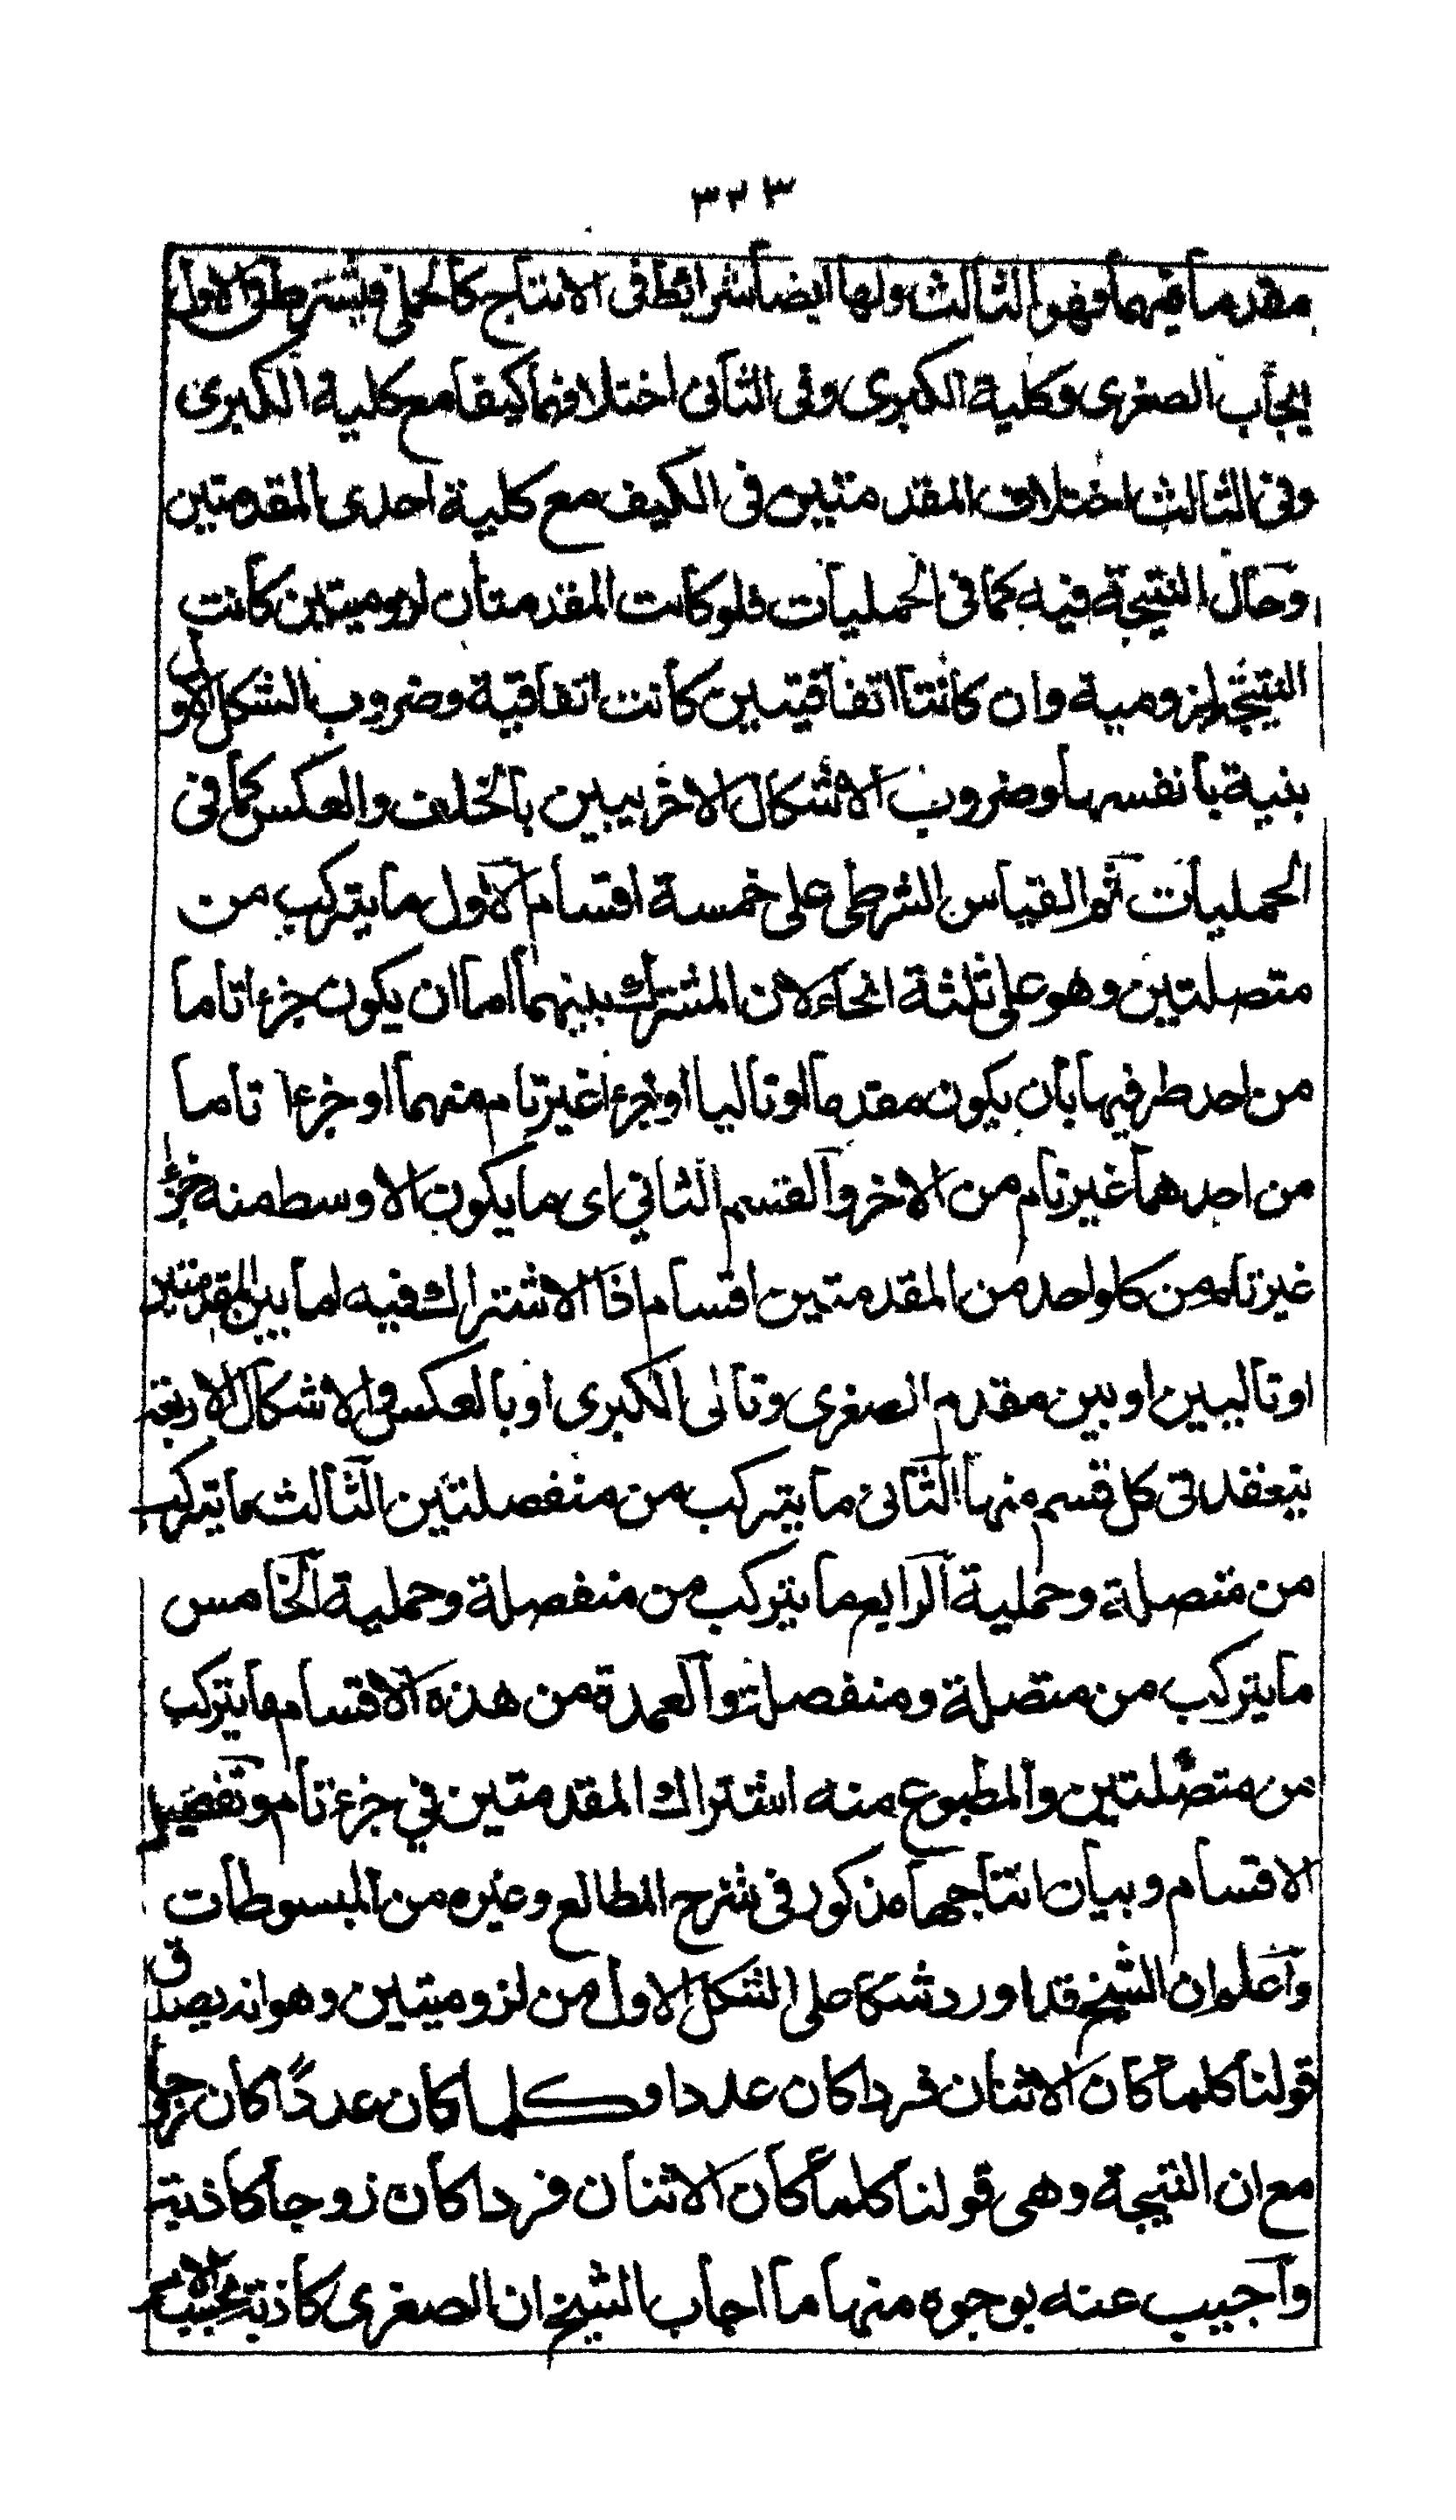 ٣٢٣
مقدما فيهما فهو الثالث ولها ايضا شرائط فى الانتاج كالحملى فيشترط فى الاول
ايجاب الصغرى وكلية الكبرى وفى الثانى اختلافهما كيفا مع كلية الكبرى
وفى الثالث اختلاف المقدمتين فى الكيف مع كلية احدى المقدمتين
وحال النتيجة فيه كما فى الحمليات فلو كانت المقدمتان لزوميتين كانت
النتيجة لزومية وان كانتا اتفاقيتين كانت اتفاقية وضروب الشكل الاول
بنية بانفسها وضروب الاشكال الاخر يبين بالخلف والعكس كما فى
الحمليات ثم القياس الشرطى على خمسة اقسام الاول ما يتركب من
متصلتين وهو على ثلثة انحاء لان المشترك بينهما اما ان يكون جزءا تاما
من احد طرفيها بان يكون مقدما او تاليا او جزءا غير تام منهما او جزءا تاما
من احدهما غير تام من الاخر والقسم الثاني اى ما يكون الاوسط منه جزءا
غير تام من كل واحد من المقدمتين اقسام اذا الاشتراك فيه اما بين المقدمتين
او تاليين او بين مقدم الصغرى وتالى الكبرى او بالعكس والاشكال الاربعة
تنعقد فى كل قسم منها الثانى ما يتركب من منفصلتين الثالث ما يتركب
من متصلة وحملية الرابع ما يتركب من منفصلة وحملية الخامس
ما يتركب من متصلة ومنفصلة والعمدة من هذه الاقسام ما يتركب
من متصلتين والمطبوع منه اشتراك المقدمتين في جزء تام وتفصيل
الاقسام وبيان انتاجها مذكور فى شرح المطالع وغيره من المبسوطات
واعلم ان الشيخ قد اورد شكا على الشكل الاول من لزوميتين وهو انه يصدق
قولنا كلما كان الاثنان فردا كان عددا وكلما كان عددًا كان زوجا
مع ان النتيجة وهى قولنا كلما كان الاثنان فردا كان زوجا كاذبة
واجيب عنه بوجوه منها ما اجاب الشيخ ان الصغرى كاذبة بحسب الامر